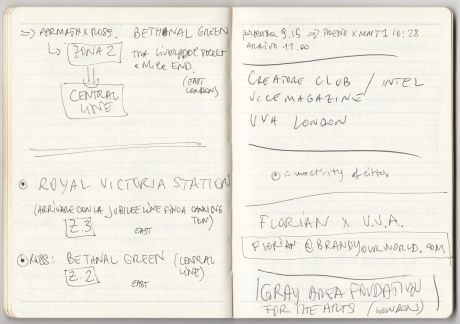 ⇒ FERMATA X ROSS.
↳ ZONA 2
CENTRAL
LINE
BETHANAL GREEN
TRA LIVERPOOL STREET
e MILE END.
(EAST
LONDON)
ROYAL VICTORIA STATION
(ARRIVARE CON LA JUBILEE LINE FINO A CANNING
TOWN)
Z.3
EAST
ROSS: BETHANAL GREEN (CENTRAL
LINE)
Z.2
EAST
9.15 ⇒ TRENO X 10:28
ARRIVO
CREATORS CLUB / INTEL
VICE MAGAZINE
VVA LONDON
a university of cities
FLORIAN X V.V.A.
FLORIAN@BRANDYOURWORLD.COM
GRAY AREA FOUDATION
FOR THE ARTS (LONDON)